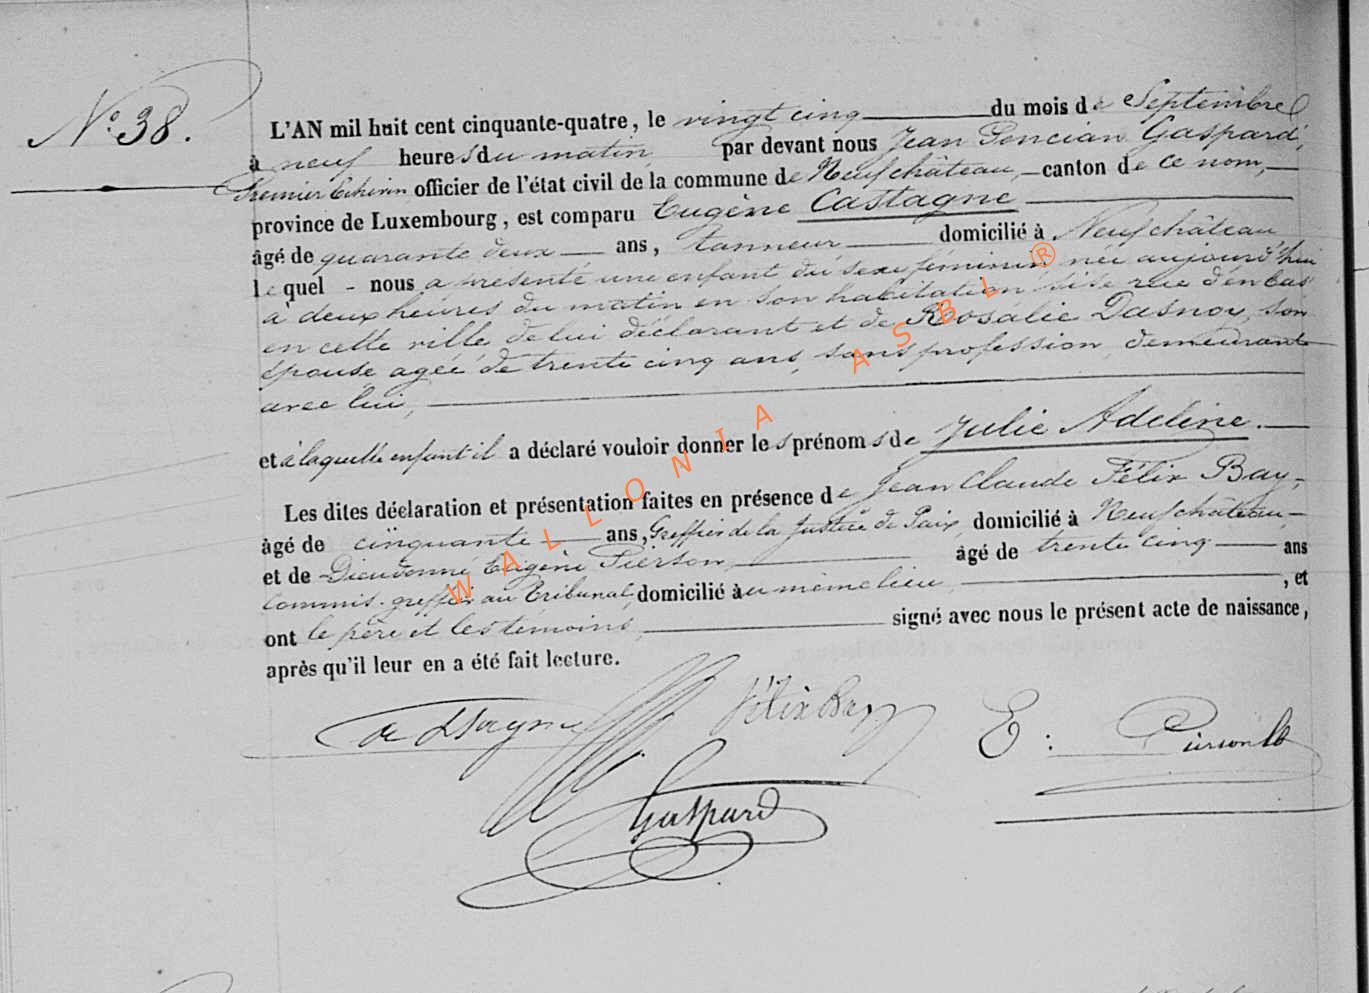 N° 38.
L'AN mil huit cent cinquante-quatre, le vingt cinq du mois de Septembre
à neuf heures du matin, par devant nous Jean Poncian Gaspard,
Premier Echevin officier de l'état civil de la commune de Neufchâteau, canton de ce nom,
province de Luxembourg, est comparu Eugène Castagne
âgé de quarante deux ans, tanneur domicilié à Neufchâteau
lequel - nous a présenté une enfant du sexe féminin née aujourd'hui
à deux heures du matin en son habitation sise rue d'en bas
en cette ville de lui déclarant et de Roosalie Dasnoy, son
épouse agée de trente cinq ans, sans profession demeurante
avec lui,
et à laquelle enfant il a déclaré vouloir donner les prénoms de Julie Adeline.
Les dites déclaration et présentation faites en présence de Jean Claude Félix Bay,
âgé de cinquante ans, Greffier de la Justice de Paix, domicilié à Neufchâteau,
et de Dieudonné Eugène Pierson, âgé de trente cinq ans
commis-greffier au Tribunal, domicilié au même lieu, , et
ont le père et les témoins, signé avec nous le présent acte de naissance,
après qu'il leur en a été fait lecture.
Félix Bay
E: Pierson
Gaspard
WALLONIA ASBL ®